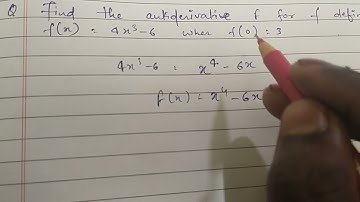 Q Find the antiderivative f for f defi
f(x) = 4x³-6 when f(0) = 3
4x³-6 = x⁴ - 6x
f(x) = x⁴ - 6x